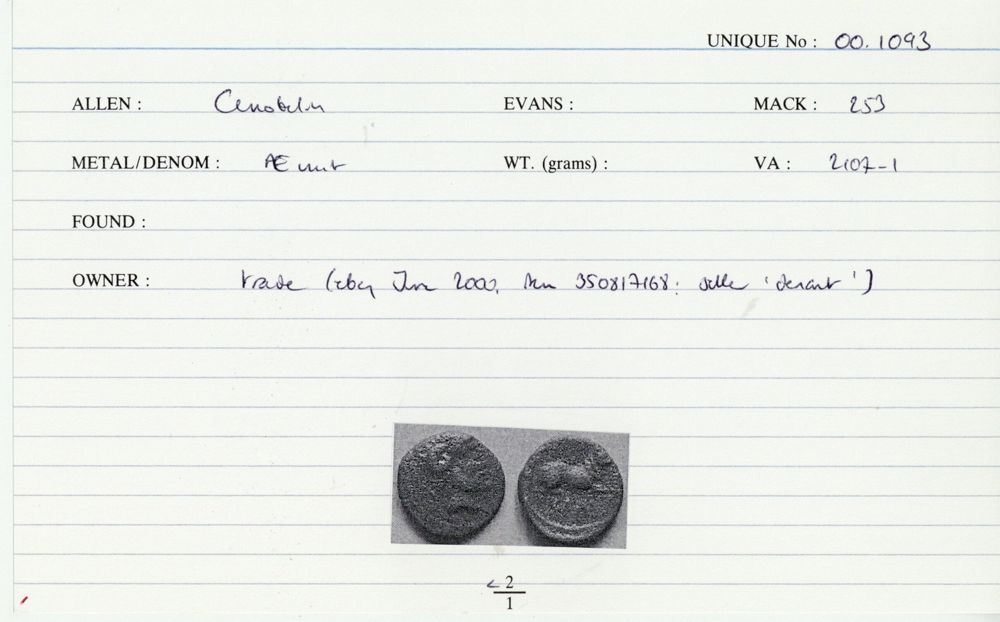 UNIQUE No : 00.1093
ALLEN : Cunobelin EVANS : MACK : 253
METAL/DENOM : Æ unit WT. (grams) : VA : 2107-1
FOUND :
OWNER : trade (ebay June 2000, item 350817168: seller ')
< 2
1